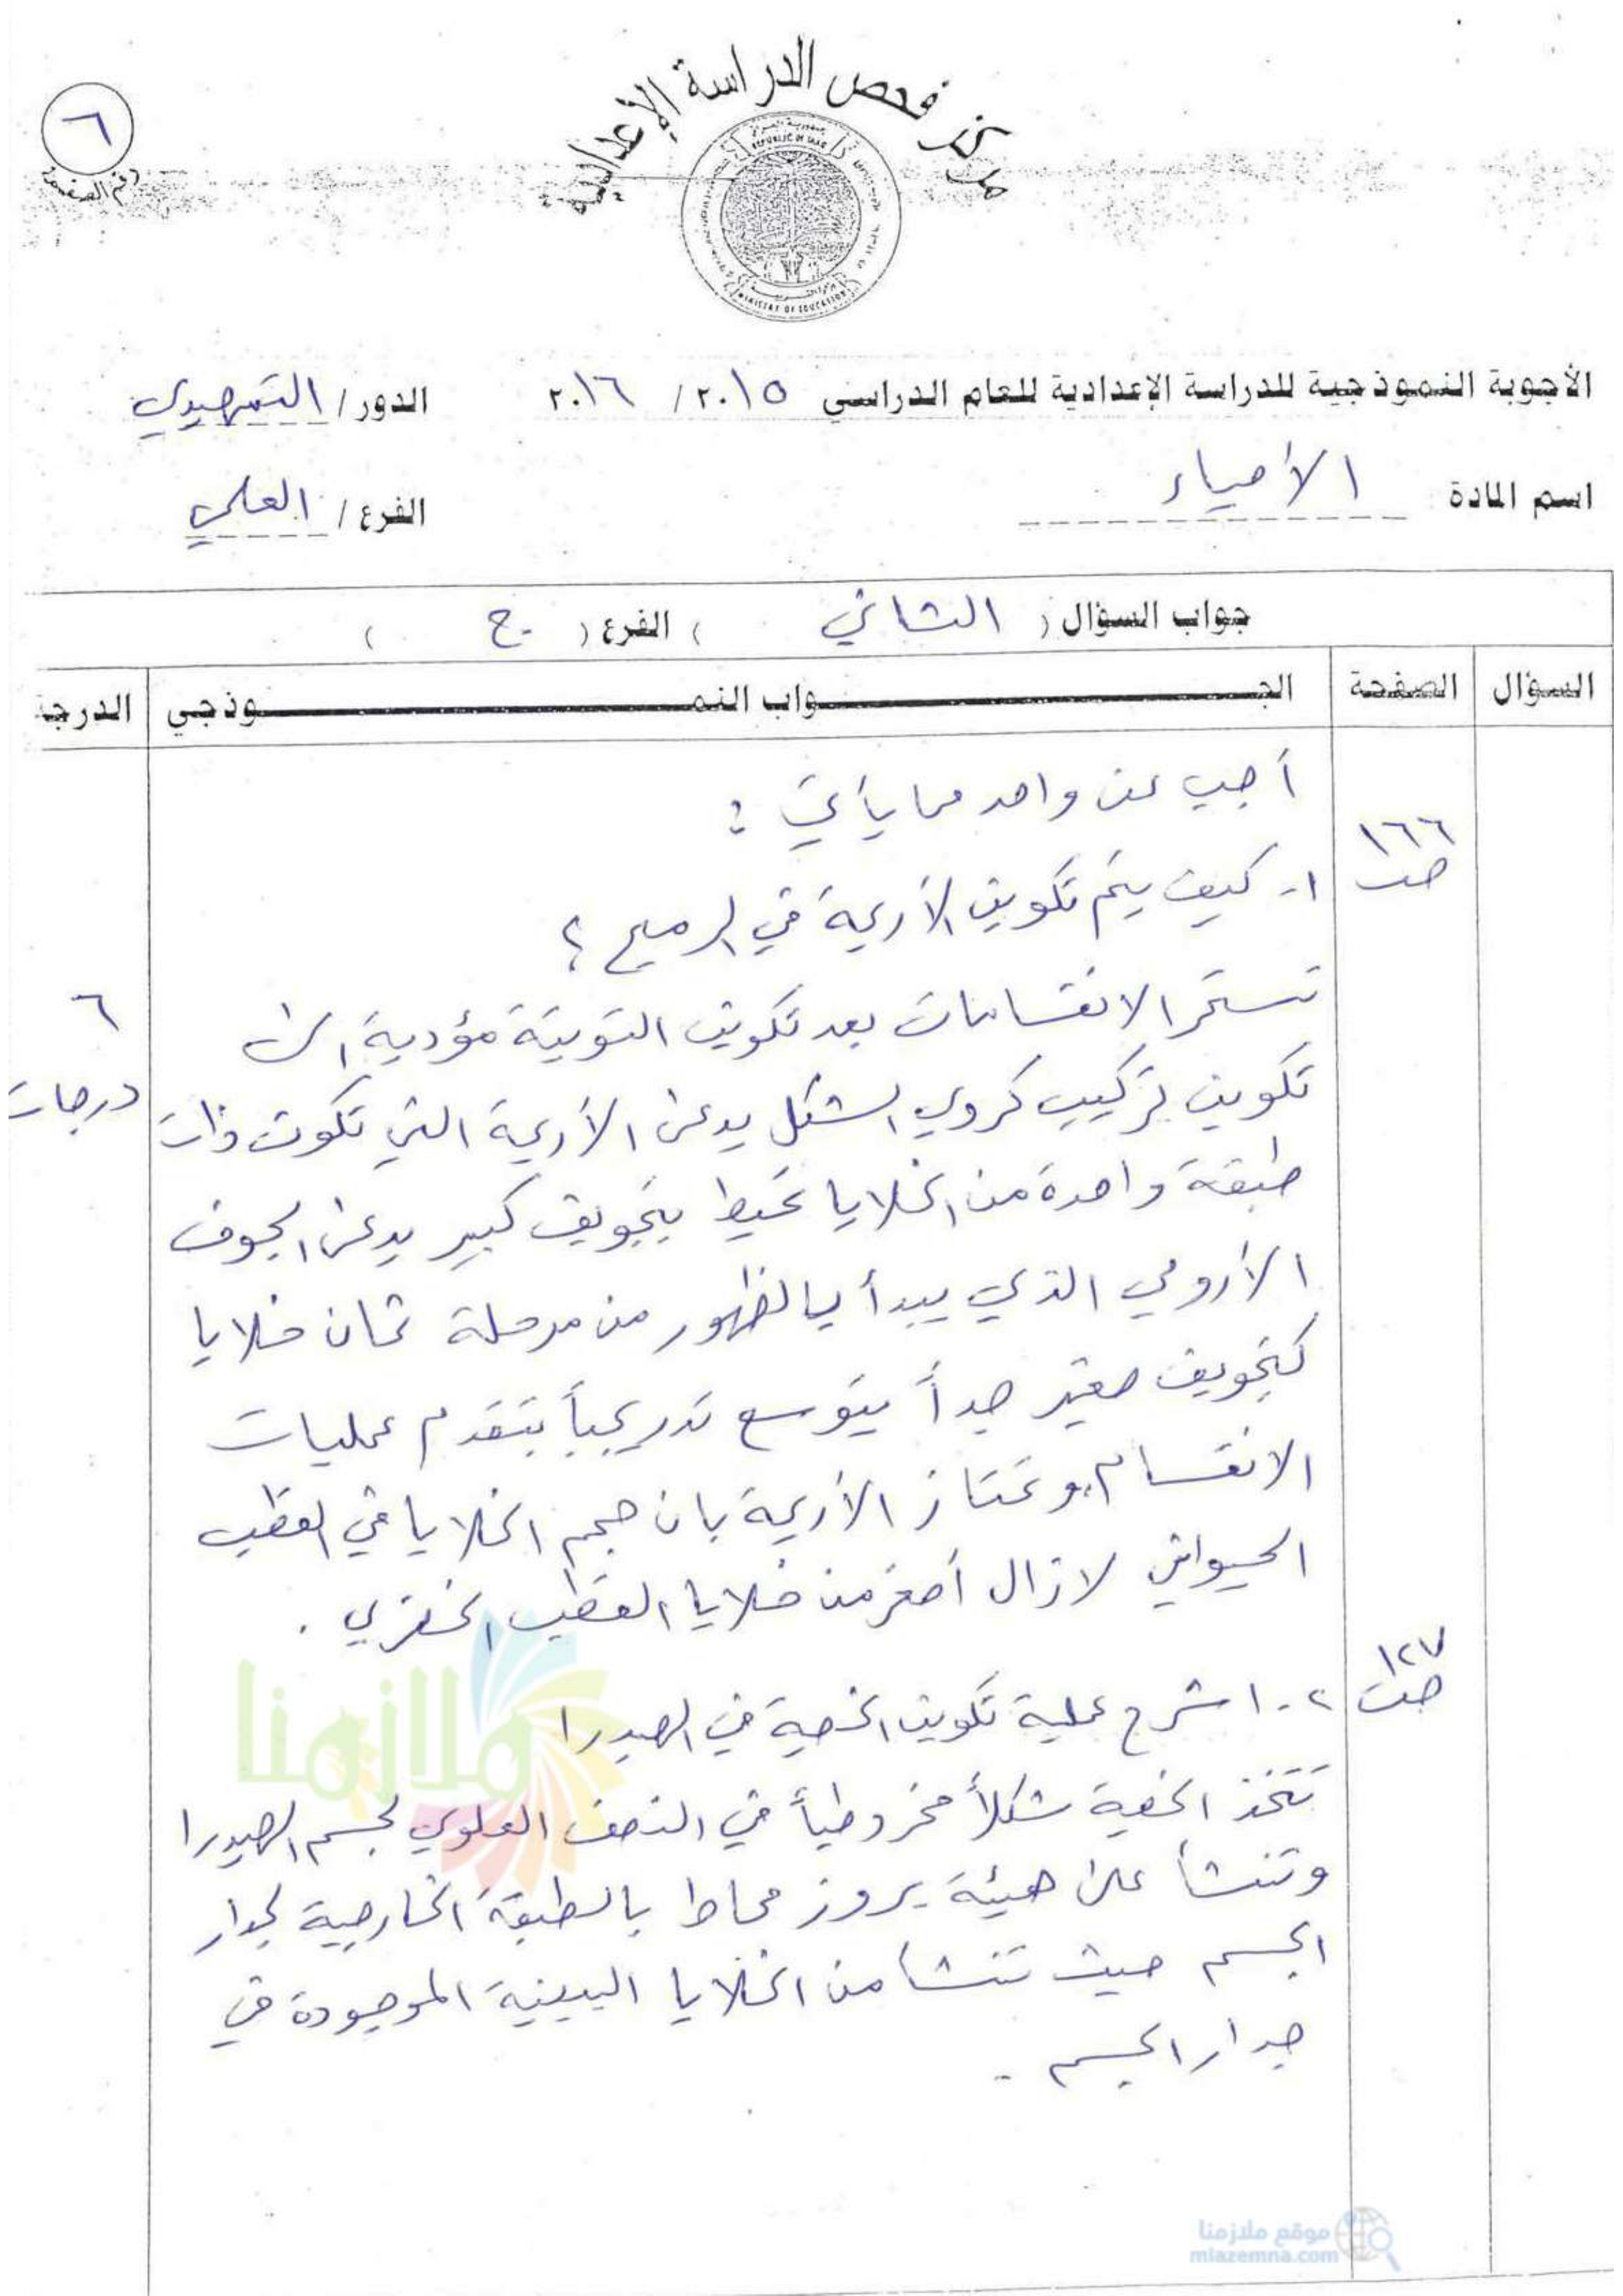 مركز فحص الدراسة الإعدادية
٦
رقم الصفحة
REPUBLIC OF IRAQ
MINISTRY OF EDUCATION
الأجوبة النموذجية للدراسة الإعدادية للعام الدراسي ٢٠١٥ / ٢٠١٦ الدور / التمهيدي
اسم المادة الأحياء الفرع / العلمي
جواب السؤال ( الثاني ) الفرع ( ج )
السؤال الصفحة الجواب النموذجي الدرجة
أجب عن واحد مما يأتي :
ص ١٦٦
١- كيف يتم تكوين الأريمة في الرميح ؟
تستمر الانقسامات بعد تكوين التويتة مؤدية الى
٦ درجات
تكوين تركيب كروي الشكل يدعى الأريمة التي تكون ذات
طبقة واحدة من الخلايا تحيط بتجويف كبير يدعى الجوف
الأرومي الذي يبدأ بالظهور من مرحلة ثمان خلايا
كتجويف صغير جداً يتوسع تدريجياً بتقدم عمليات
الانقسام، وتمتاز الأريمة بان حجم الخلايا في القطب
الحيواني لازال أصغر من خلايا القطب الخضري .
ص ١٢٧
٢- اشرح عملية تكوين الخصية في الهيدرا
تتخذ الخصية شكلاً مخروطياً في النصف العلوي لجسم الهيدرا
وتنشأ على هيئة بروز محاط بالطبقة الخارجية لجدار
الجسم حيث تنشأ من الخلايا البينية الموجودة في
جدار الجسم .
ملازمنا
موقع ملازمنا
mlazemna.com